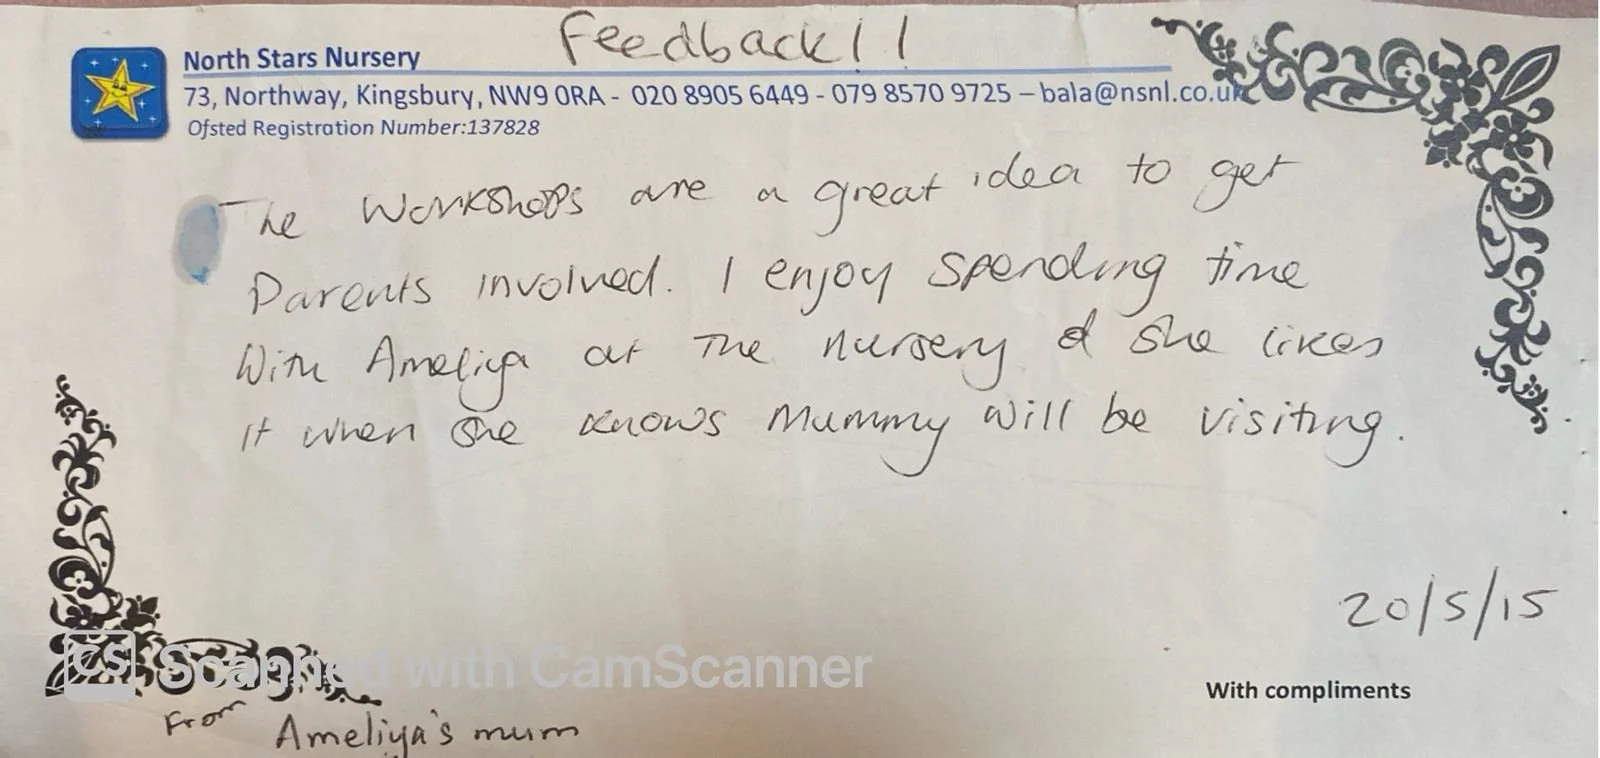 Feedback!!
North Stars Nursery
73, Northway, Kingsbury, NW9 0RA - 020 8905 6449 - 079 8570 9725 – bala@nsnl.co.uk
Ofsted Registration Number:137828
The Workshops are a great idea to get
Parents involved. I enjoy spending time
With Ameliya at the nursery & she likes
it when she knows Mummy will be visiting.
20/5/15
CS Scanned with CamScanner
With compliments
From Ameliya's mum